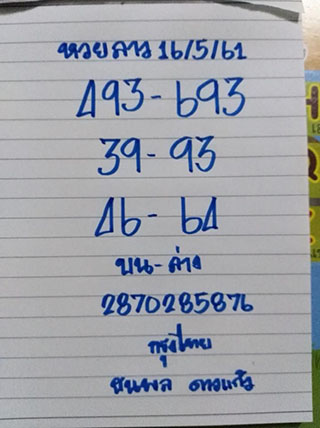 หวยลาว 16/5/61
493 - 693
39 - 93
46 - 64
บน - ล่าง
2870285876
กรุงไทย
ชนพล ดาวแก้ว